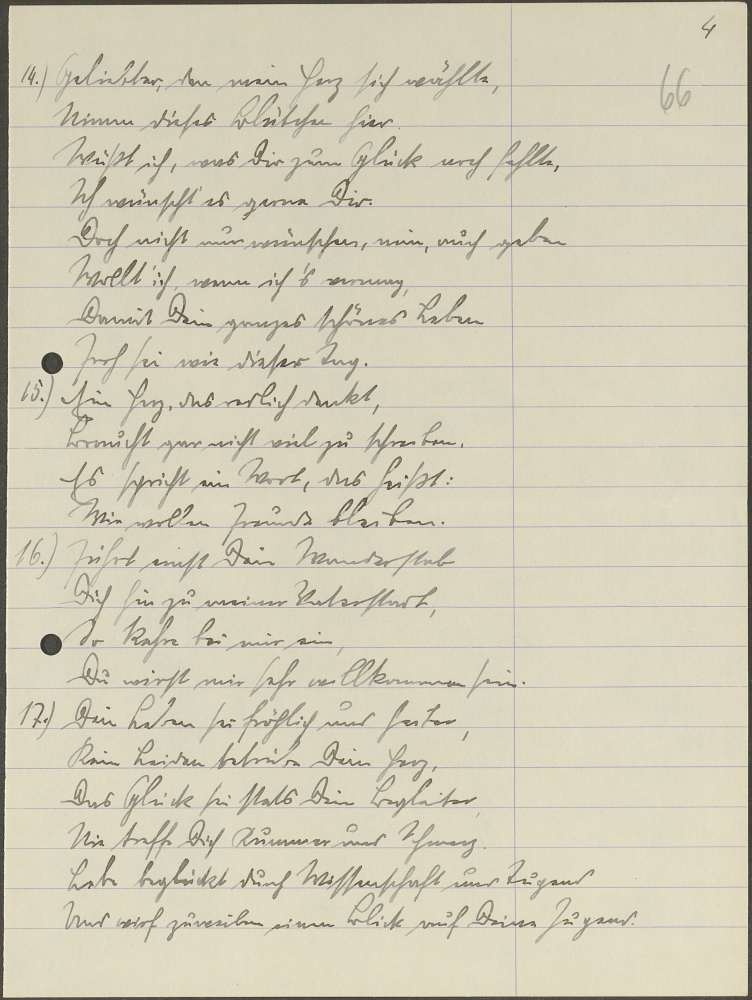 4
66
14.) Geliebter, den mein Herz sich wählte,
Nimm dieses Blütchen hier.
Wüßt ich, was Dir zum Glück noch fehlte,
Ich wünscht' es gerne Dir.
Doch nicht nur wünschen, nein, auch geben
Wollt' ich, wenn ich's vermag,
Damit Dein ganzes schönes Leben
Froh sei wie dieser Tag.
15.) Ein Herz, das redlich denkt,
Braucht gar nicht viel zu schreiben.
Es spricht ein Wort, das heißt:
Wir wollen Freunde bleiben.
16.) Führt einst Dein Wanderstab
Dich hin zu meiner Vaterstadt,
So kehre bei mir ein,
Du wirst mir sehr willkommen sein.
17.) Dein Leben sei fröhlich und heiter,
Kein Leiden betrübe Dein Herz,
Das Glück sei stets Dein Begleiter,
Nie treffe Dich Kummer und Schmerz.
Lebe beglückt durch Wissenschaft und Tugend
Und wirf zuweilen einen Blick auf Deine Jugend.